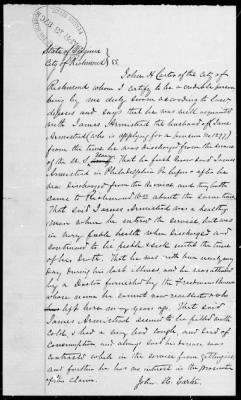 State of Virginia }
City of Richmond } SS.
John H Carter of the City of
Richmond whom I certify to be a credible person
being by me duly sworn according to law
deposes and says that he was well acquainted
with James Armistead the husband of Jane
Armistead (who is applying for a pension No.
from the time he was discharged from the service
of the U.S. That he first knew said James
Armistead in Philadelphia Pa before & after he
was discharged from the service and they both
came to Richmond Va about the same time
That said James Armistead was a healthy
man when he entered the service but was
in very feeble health when discharged and
continued to be feeble & sick until the time
of his death. That he was with him nearly every
day during his last illness and he was attended
by a Doctor furnished by the Freedmens Bureau
whose name he cannot now recollect & who
left here many years ago. That said
James Armistead seemed to be filled with
cold, & had a very bad cough and died of
consumption and always said his disease was
contracted while in the service from getting wet
and further he has no interest in the prosecution
of this claim.
John H. Carter